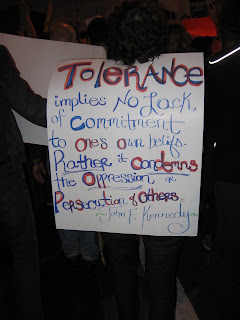 TOLERANCE
implies NO Lack
of Commitment
to one's own beliefs.
Rather it condemns
the oppression or
Persecution of Others.
-John F. Kennedy-